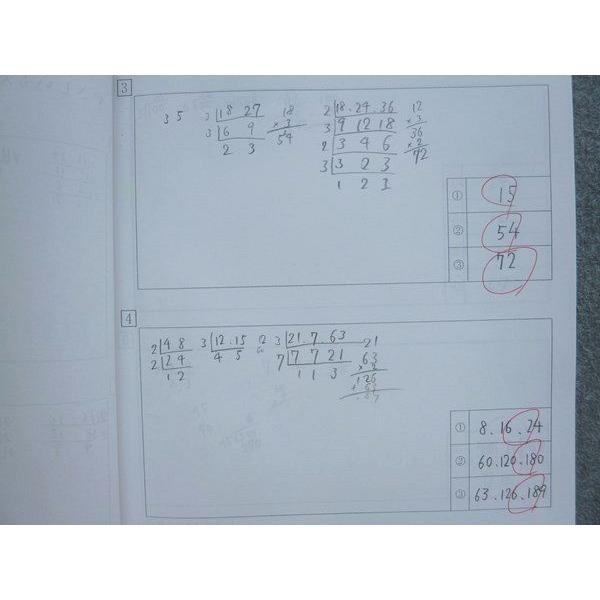 3
3 5
3 18 27
3 6 9
2 3
18
× 3
54
2 18.24.36
3 9 12 18
2 3 4 6
3 3 2 3
1 2 3
12
× 3
36
× 2
72
① 15
② 54
③ 72
4
2 4 8
2 2 4
1 2
3 12.15
4 5
3 21.7.63
7 7 7 21
1 1 3
21
63
126
① 8.16.24
② 60.120.180
③ 63.126.189